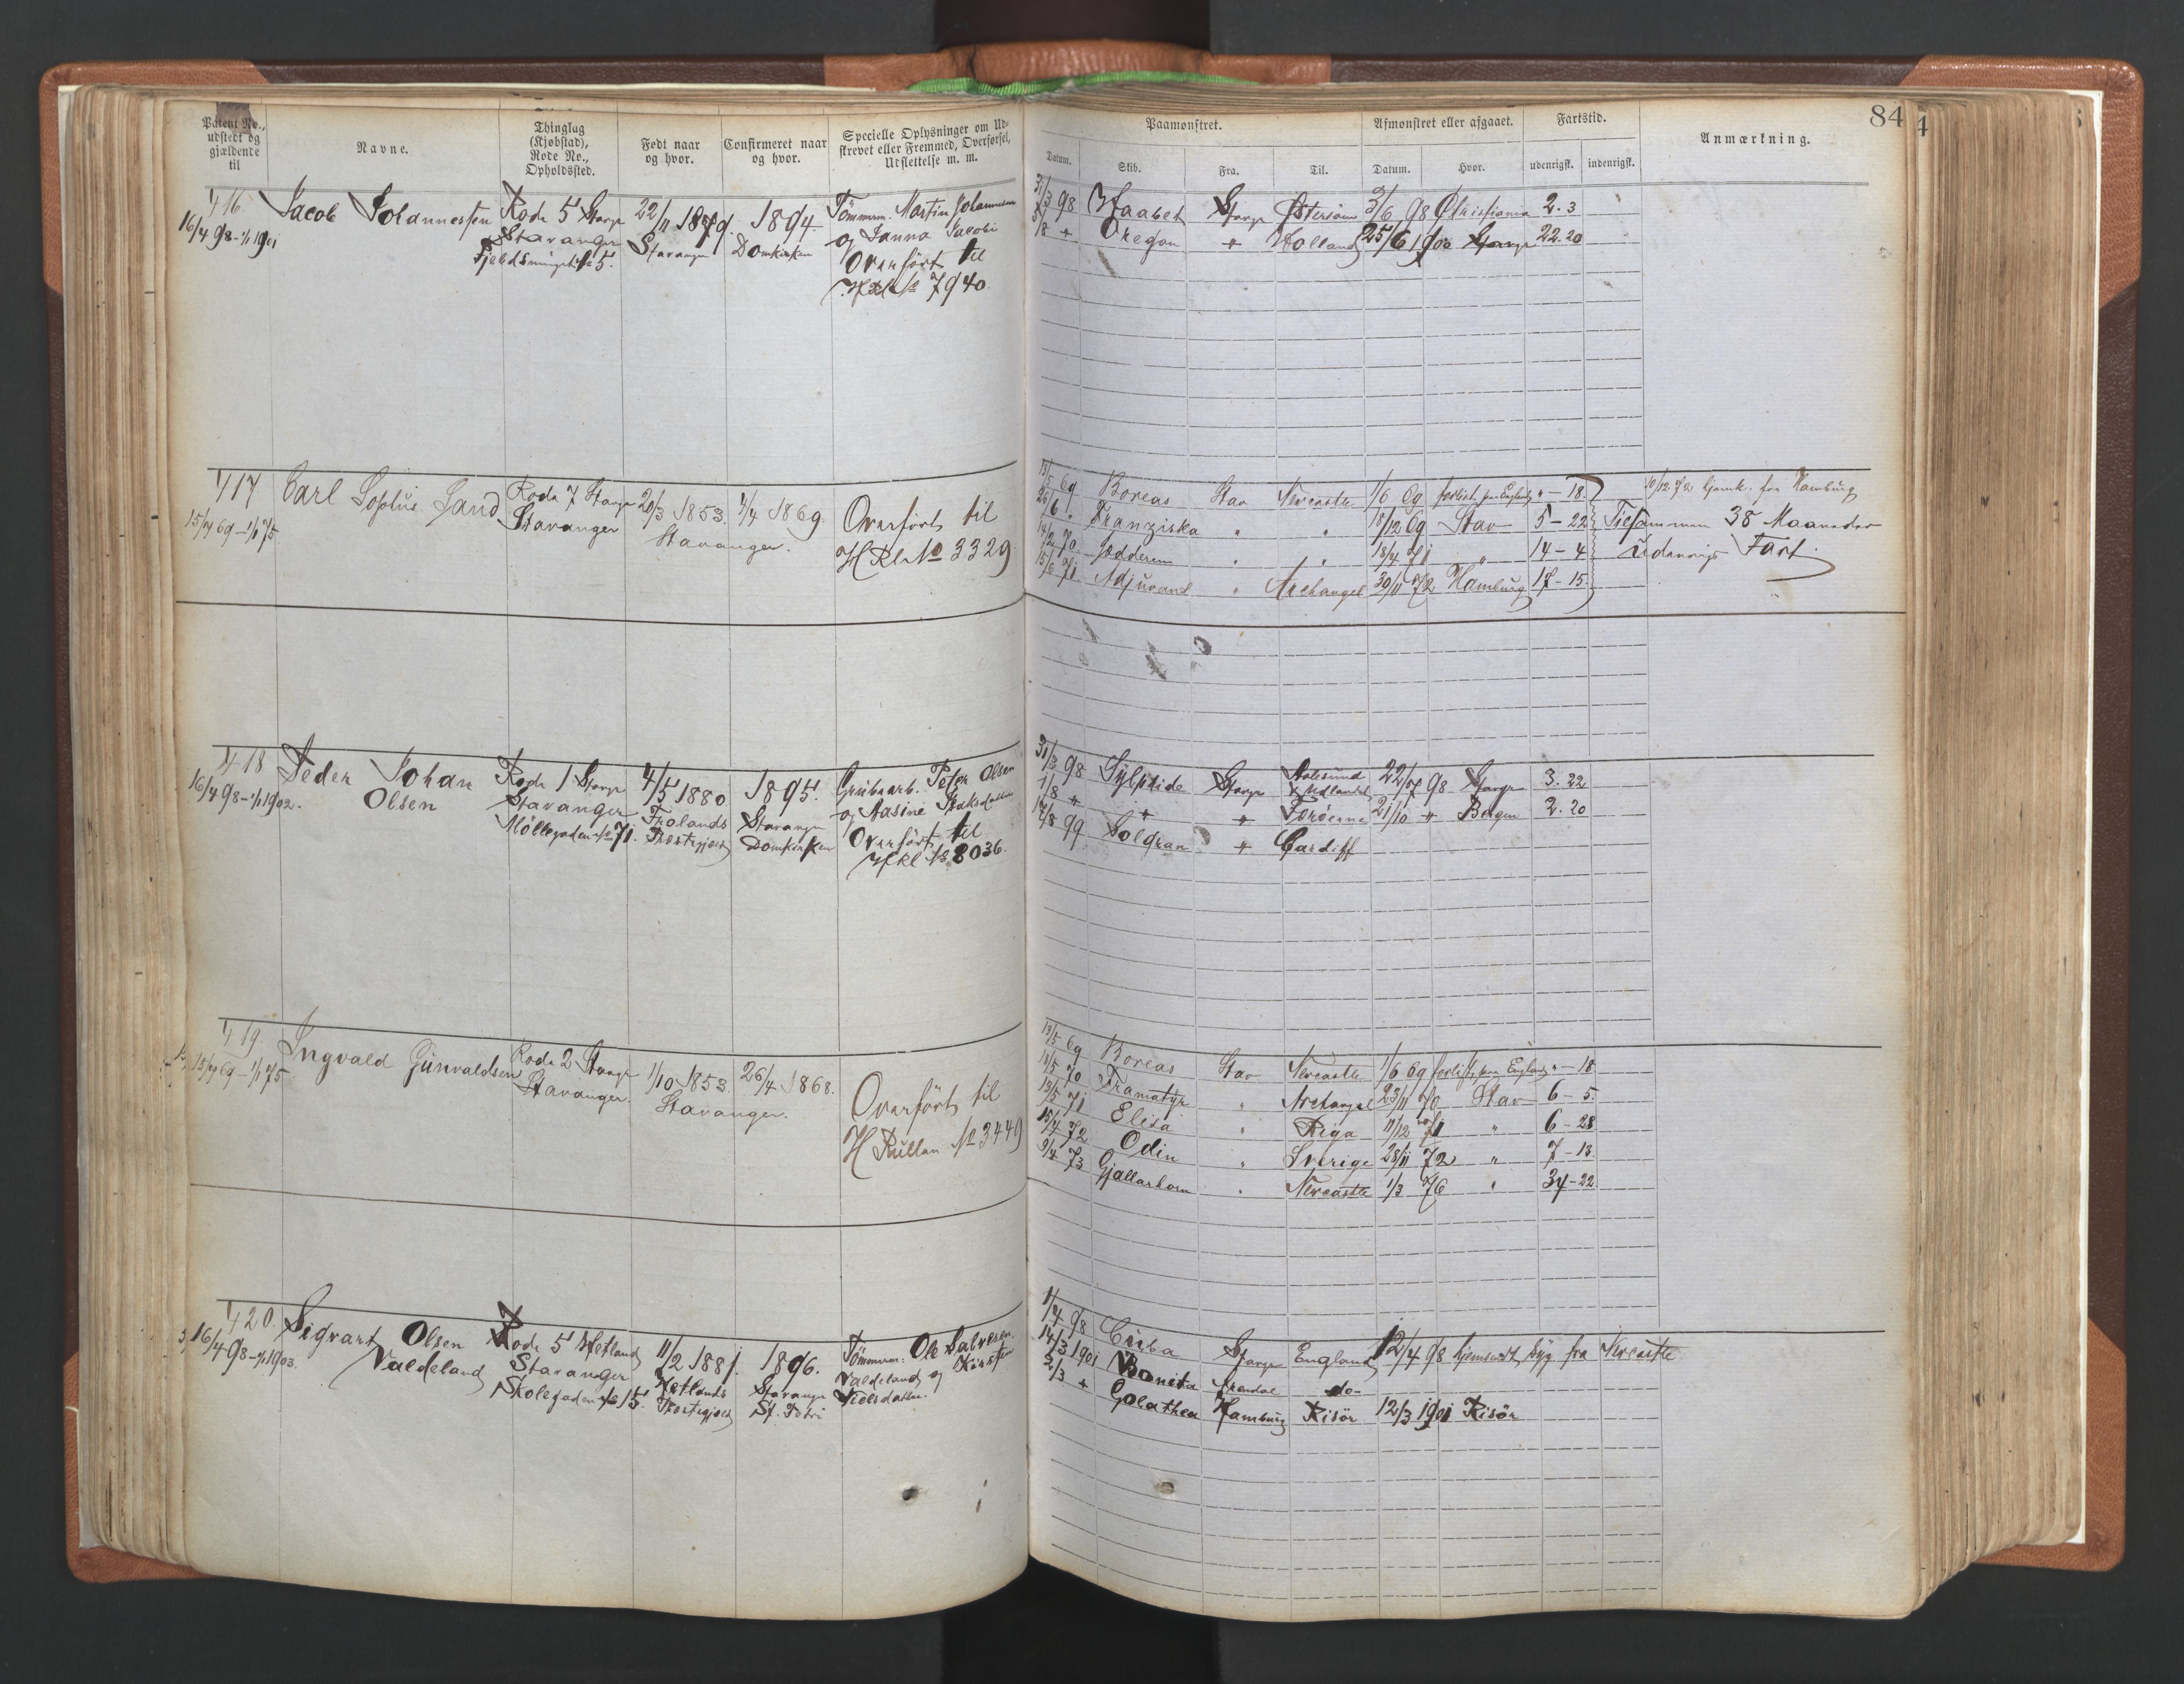 Patent No., udstedt og gjældende til
Navne.
Thinglag (Kjøbstad), Rode No., Opholdssted.
Født naar og hvor.
Confirmeret naar og hvor.
Specielle Oplysninger om Udskrevet eller Fremmed, Overførsel, Udslettelse m. m.
Paamønstret.
Datum.
Skib.
Fra.
Til.
Afmønstret eller afgaaet.
Datum.
Hvor.
Fartstid.
udenrigsk.
indenrigsk.
Anmærkning.
84
4
416
16/4 98 - 1/1 1901
Jacob Johannessen
Rode 5 Stavgr
Stavanger
No 5.
22/11 1879.
Stavanger
1894.
Domkirken
Tömmerm. Martin Johannessen
og Janna Jacobi
Overført til
HRl No 7940.
31/3 98 Haabet Stavgr Østersøen 3/6 98 Christiania 2. 3
5/8 " Oregon " Holland 25/6 1900 Stavgr 22. 20
417
15/4 69 - 1/1 75
Carl Sophus Sand
Rode 7 Stavgr
Stavanger
20/3 1853.
Stavanger.
4/4 1869.
Overført til
HRl No 3329
13/5 69 Boreas Stav Newcastle 1/6 69 forlist paa England " - 18.
26/6 " Franziska " " 18/12 69 Stav 5 - 22
14/2 70 Jædderen " " 18/4 71 " 14 - 4
15/6 71 Adjutant " Archangel 30/11 72 Hamburg 17 - 15.
10/12 72 hjemk. fra Hamburg
Tilsammen 38 Maaneder
udenrigs Fart.
418
16/4 98 - 1/1 1902.
Peder Johan
Olsen
Rode 1 Stavgr
Stavanger
Möllegaden No 71.
4/5 1880
Præstegjæld
1895.
Stavanger
Domkirken
Peder Olsen
og Aasine
Overført til
HRl No 8036.
31/3 98 Sylphide Stavgr Aalesund & Udlandet 22/7 98 Stavgr 3. 22
1/8 " " " Færøerne 21/10 " Bergen 2. 20
17/8 99 Solgran " Cardiff
419
15/4 69 - 1/1 75
Ingvald Gunvaldsen
Rode 2 Stavgr
Stavanger.
1/10 1853.
Stavanger.
26/4 1868.
Overført til
H Rullen No 3449
13/5 69 Boreas Stav Newcastle 1/6 69 forlist paa England " - 18
18/5 70 Framatyr " Archangel 23/11 70 Stav 6 - 5.
13/5 71 Elisa " Riga 11/12 71 " 6 - 28
15/4 72 Odin " Sverige 28/11 72 " 7 - 13.
9/4 73 Gjallarhorn " Newcastle 1/3 76 " 34 - 22.
420.
16/4 98 - 1/1 1903.
Sigvart Olsen
Valdeland
Rode 5 Hetland
Stavanger
Skolegaden No 15.
11/2 1881.
Hetlands
Præstegjæld
1896.
Stavanger
St. Petri
Tömmerm. Ole Salvesen
Valdeland og Kirsten
Nielsdatter.
1/4 98 Ceriba Stavgr England 12/4 98 hjemsendt syg fra Newcastle
14/3 1901 Bonita Arendal do
3/3 " Golathea Hamburg Risör 12/3 1901 Risör